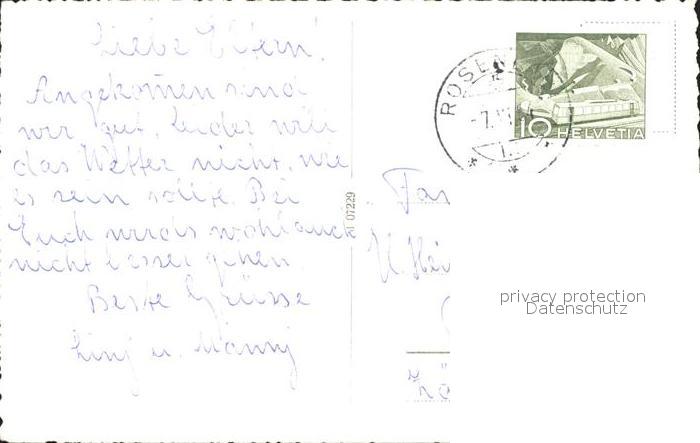 Liebe Eltern!
Angekommen sind
wir gut, leider will
das Wetter nicht, wie
es sein sollte. Bei
Euch wirds wohl auch
nicht besser gehen.
Beste Grüsse
u.
07229
ROSEN
-7.VI
10 HELVETIA
Fa
privacy protection
Datenschutz